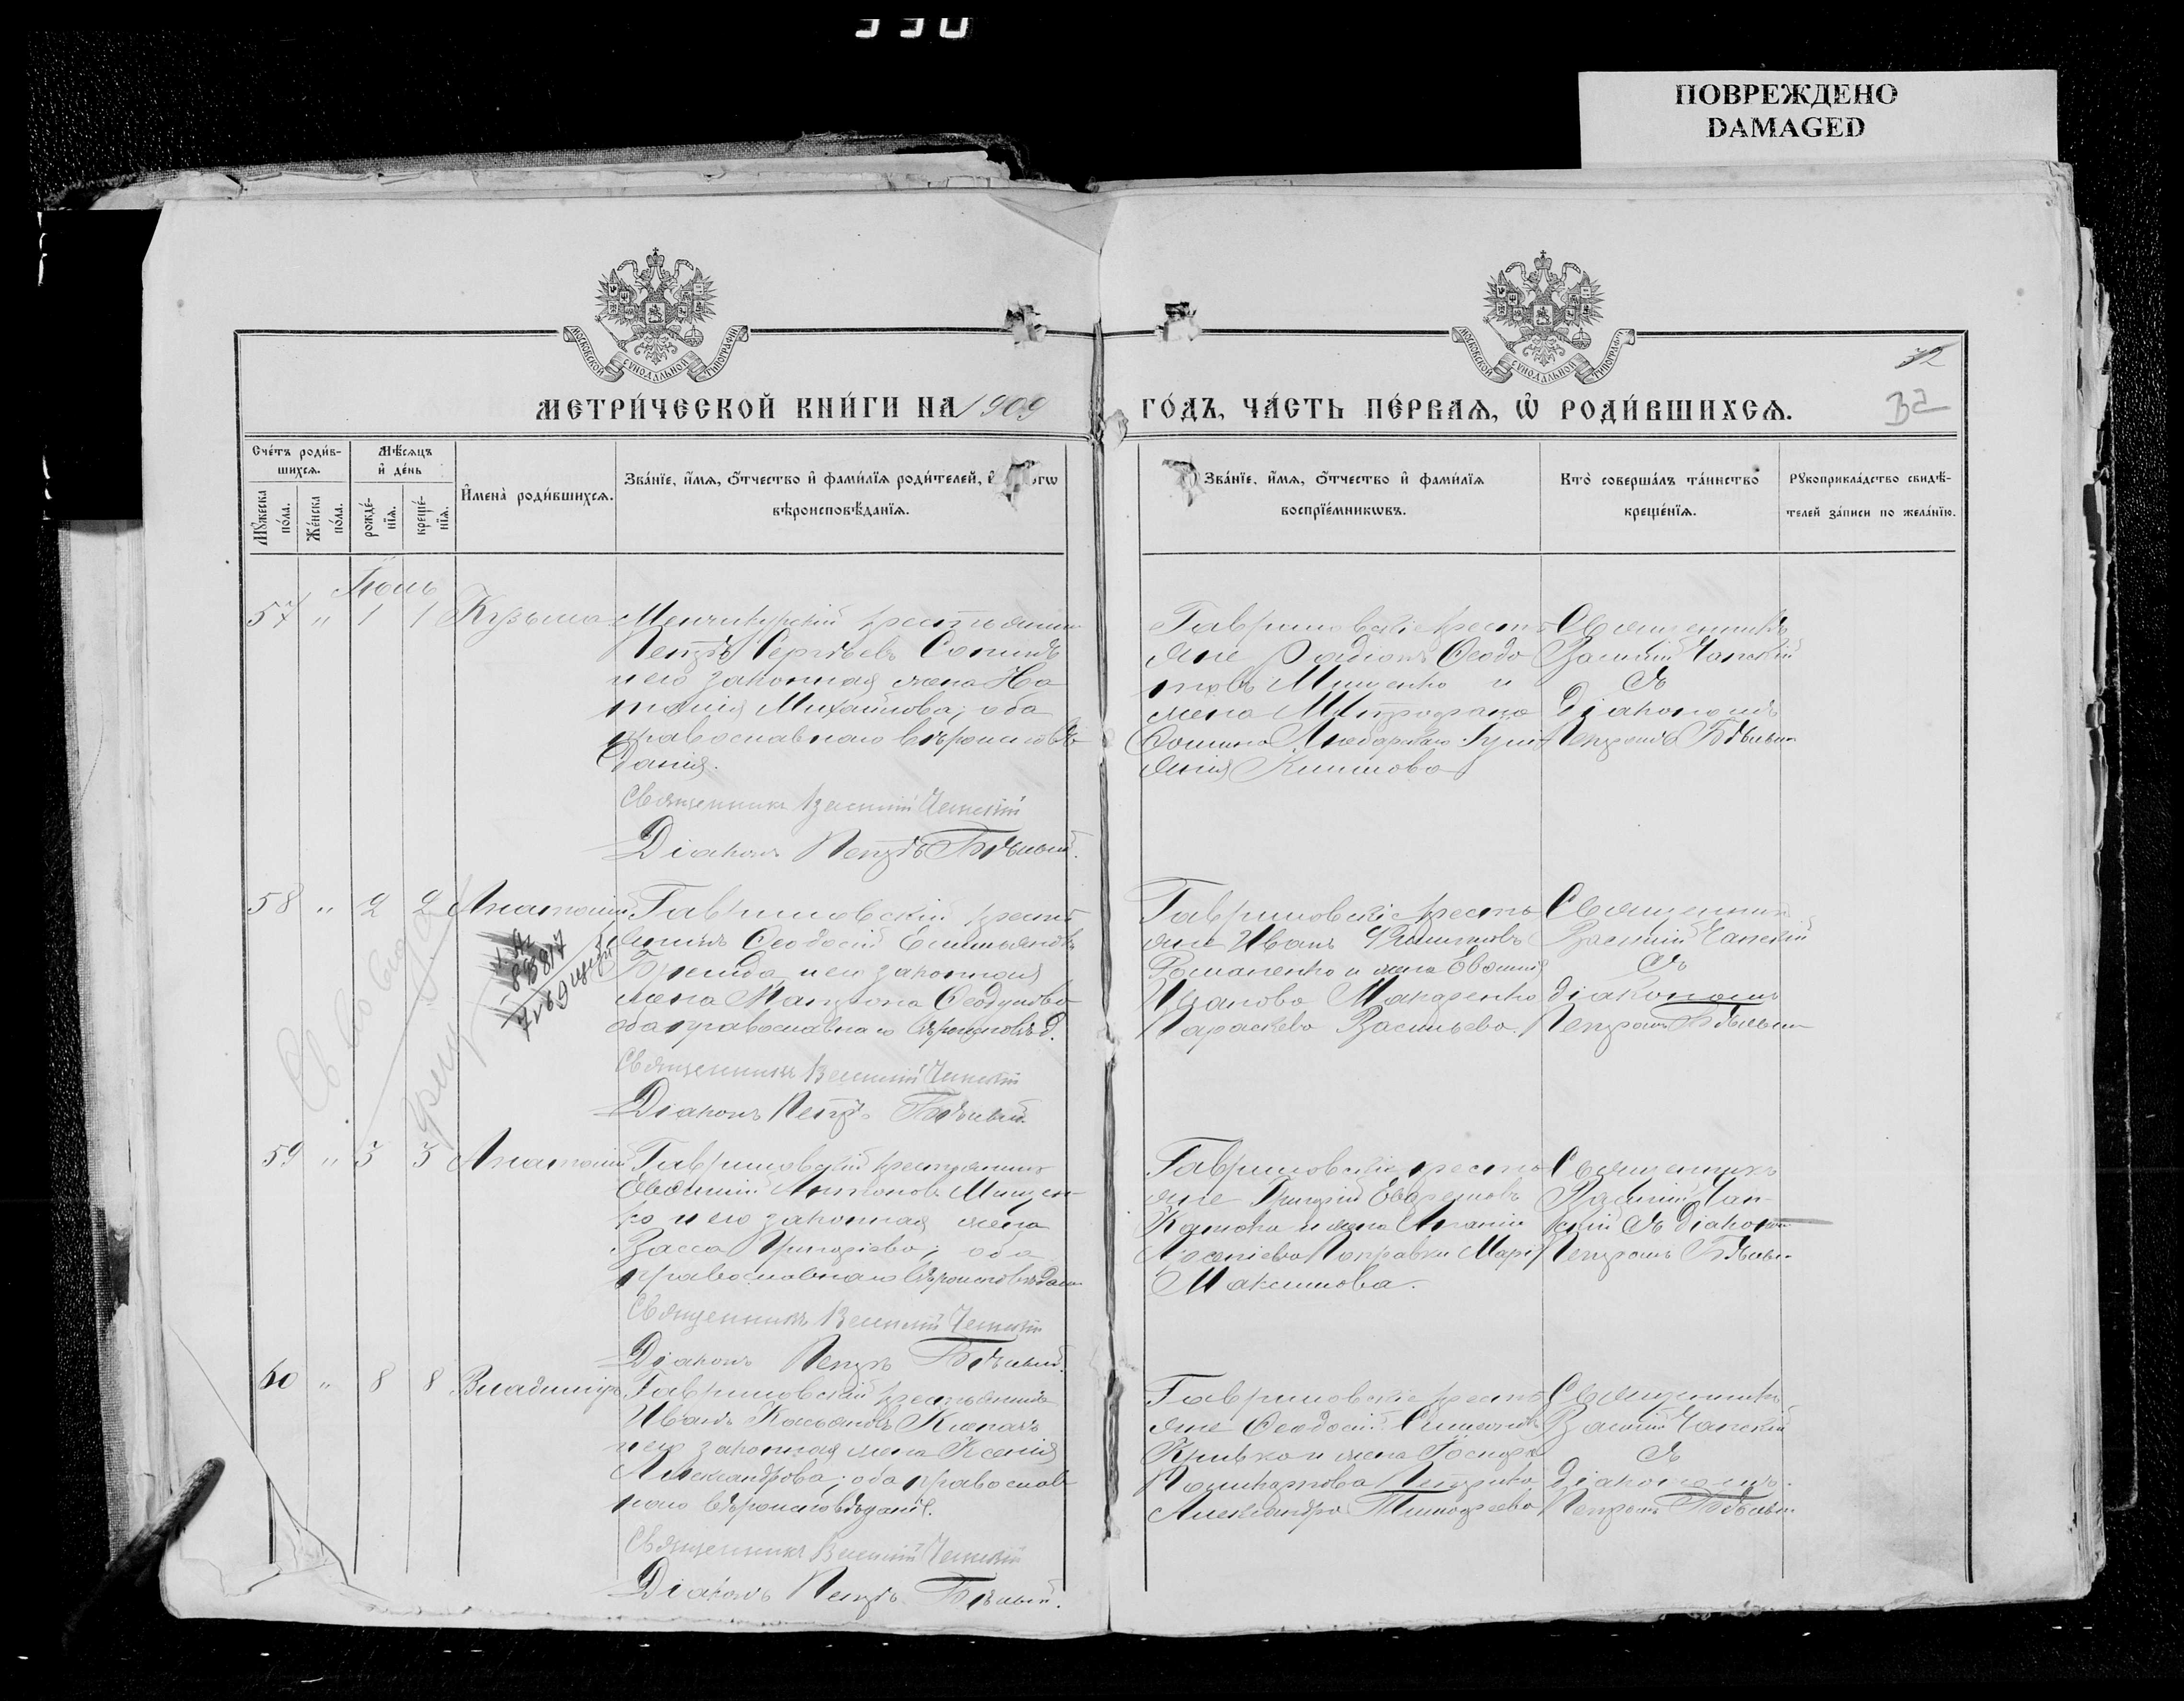 330
ПОВРЕЖДЕНО
DAMAGED
МОСКОВСКОЙ СѴНОДАЛЬНОЙ ТИПОГРАФІИ
МОСКОВСКОЙ СѴНОДАЛЬНОЙ ТИПОГРАФІИ
32
32
МЕТРИ́ЧЕСКОЙ КНИ́ГИ НА 1909
ГО́ДЪ, ЧА́СТЬ ПЕ́РВАѦ, Ѡ РОДИ́ВШИХСѦ.
Сче́тъ роди́в-
шихсѧ.
Мꙋ́жеска по́ла.
Же́нска по́ла.
Мѣ́сѧцъ
и҆ де́нь
рожде́-
нїѧ.
креще́-
нїѧ.
И҆мена̀ роди́вшихсѧ.
Зва́нїе, и҆́мѧ, ѻ҆́тчество и҆ фами́лїѧ роди́телей, и҆
вѣроисповѣ́данїѧ.
Зва́нїе, и҆́мѧ, ѻ҆́тчество и҆ фами́лїѧ
воспрїе́мникѡвъ.
Кто̀ соверша́лъ та́инство
креще́нїѧ.
Рꙋкоприкла́дство свидѣ́-
телей за́писи по жела́нїю.
Іюль
57 " 1 1 Кузьма
Менчикурскій крестьянинъ
Петръ Сергѣевъ Сопинъ
и его законная жена На
талія Михайлова; оба
православнаго вѣроисповѣ
данія.
Священникъ Василій Чапскій
Діаконъ Петръ Бѣлый.
Гавриловскіе кресть
яне Родіонъ Ѳеодо
товъ Мищенко и
жена Митрофана
Климова
Священникъ
Василій Чапскій
съ
діакономъ
Петромъ Бѣлым
58 " 2 2 Анатолій
Гавриловскій крест
янинъ Ѳеодосій Емильяновъ
и его законная
жена Матрона Ѳеодулова
оба православнаго вѣроисповѣд.
Священникъ Василій Чапскій
Діаконъ Петръ Бѣлый.
Гавриловскіе кресть
яне Иванъ Филиповъ
Романенко и жена Евѳимія
Ицакова Макаренко
Параскева Васильева.
Священник
Василій Чапскій
съ
діакономъ
Петромъ Бѣлым
59 " 3 3 Анатолій
Гавриловскій крестьянинъ
Евѳимій Антоновъ Мищен-
ко и его законная жена
Васса Григоріева; оба
православнаго вѣроисповѣдан
Священникъ Василій Чапскій
Діаконъ Петръ Бѣлый.
Гавриловскіе кресть
яне Григорій Ефремовъ
и жена
Марія
Максимова.
Священникъ
Василій Чап-
скій съ діаконом
Петромъ Бѣлым
60 " 8 8 Владимиръ
Гавриловскій крестьянинъ
Иванъ Касьяновъ
и его законная жена Ксенія
Александрова; оба православ
наго вѣроисповѣданія.
Священникъ Василій Чапскій
Діаконъ Петръ Бѣлый.
Гавриловскіе кресть
яне Ѳеодосій Симеоновъ
Кривко и жена
Поликарпова
Александра Тимоѳеева
Священникъ
Василій Чапскій
съ
діакономъ
Петромъ Бѣлым